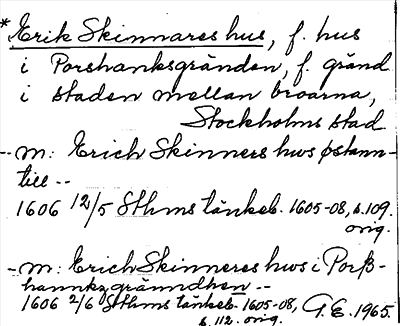 * Erik Skinnares hus, f. hus
i Porshanksgränden, f. gränd
i staden mellan broarna,
Stockholms stad
-- m: Erich Skinners hws østann-
till --
1606 12/5 Sthms tänkeb. 1605-08, s. 109.
orig.
-- m: Erich Skinneres hws i Porß-
hannkz grämdhen --
1606 2/6 Sthms tänkeb. 1605-08, G.E. 1965.
s. 112. orig.